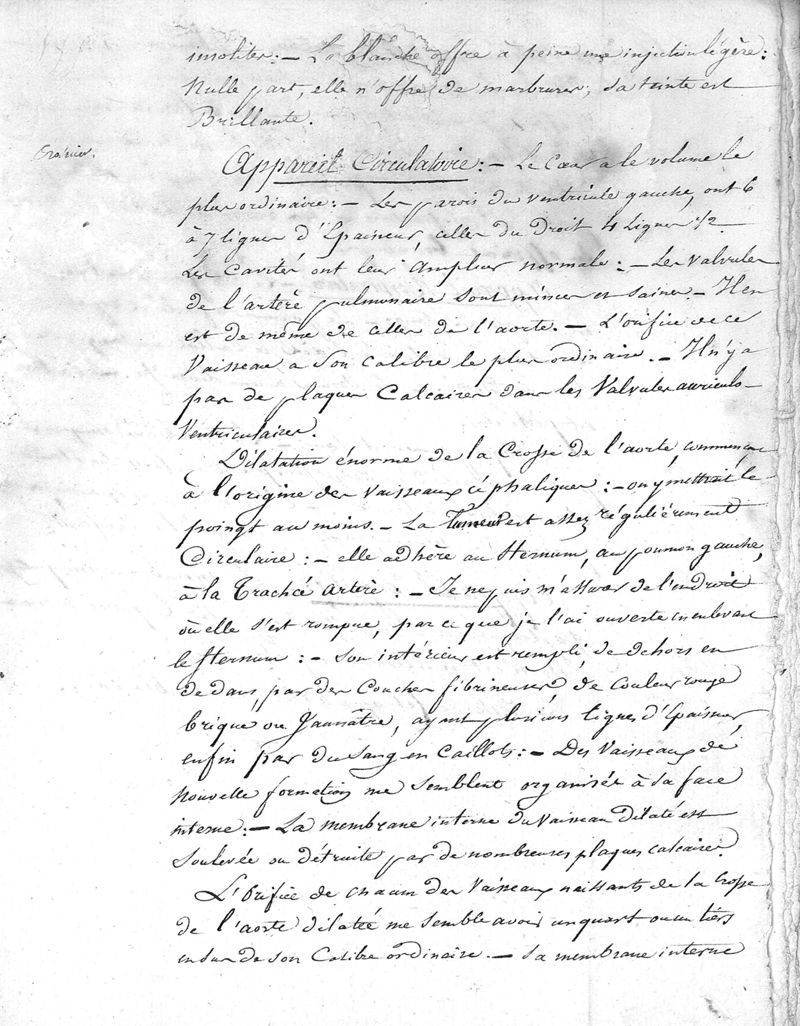 insolites: – La blanche offre à peine une injection légère:
Nulle part, elle n'offre de marbrures; sa teinte est
Brillante.
Appareil Circulatoire: – Le Cœur a le volume le
plus ordinaire: – Les parois du ventricule gauche, ont 6
à 7 lignes d'Epaisseur, celles du Droit 4 Lignes 1/2.
Les Cavités ont leur Ampleur normale: – Les Valvules
de l'artère pulmonaire sont minces et saines. – Il en
est de même de celles de l'aorte. – L'orifice de ce
Vaisseau a Son Calibre le plus ordinaire. – Il n'y a
pas de plaques Calcaires dans les Valvules auriculo-
Ventriculaires.
Dilatation énorme de la Crosse de l'aorte, commençe
à l'origine des Vaisseaux céphaliques: – on y mettrait le
poingt au moins. – La Tumeur est assez régulièrement
Circulaire: – elle adhère au Sternum, au poumon gauche,
à la Trachée Artère: – Je ne puis m'assurer de l'endroit
où elle s'est rompue, par ce que je l'ai ouverte en enlevant
le Sternum: – Son intérieur est rempli, de dehors en
dedans, par des Couches fibrineuses, de Couleur rouge
brique ou Jaunâtre, ayant plusieurs lignes d'Epaisseur,
enfin par du Sang en Caillots: – Des Vaisseaux de
Nouvelle formation me Semblent organisés à Sa face
interne: – La membrane interne du Vaisseau dilaté est
Soulevée ou détruite par de nombreuses plaques calcaires.
L'Orifice de chacun des Vaisseaux naissants de la Crosse
de l'aorte dilatée me Semble avoir un quart ou un tiers
en Sus de Son Calibre ordinaire. – Sa membrane interne